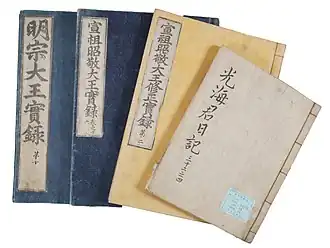 明宗大王實錄
第十
宣祖昭敬大王實錄
宣祖昭敬大王修正實錄
第二
光海君日記